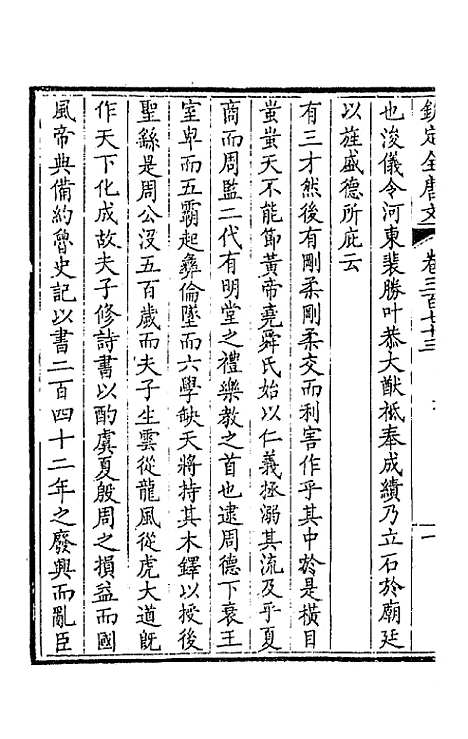 欽定全唐文 卷三百七十三 一
也浚儀令河東裴勝叶恭大猷祗奉成績乃立石於廟延
以旌盛德所庇云
有三才然後有剛柔剛柔交而利害作乎其中於是橫目
蚩蚩天不能節黃帝堯舜氏始以仁義拯溺其流及乎夏
商而周監二代有明堂之禮樂教之首也逮周德下衰王
室卑而五霸起彝倫墜而六學缺天將持其木鐸以授後
聖繇是周公沒五百歲而夫子生雲從龍風從虎大道旣
作天下化成故夫子修詩書以酌虞夏殷周之損益而國
風帝典備約魯史記以書二百四十二年之廢興而亂臣